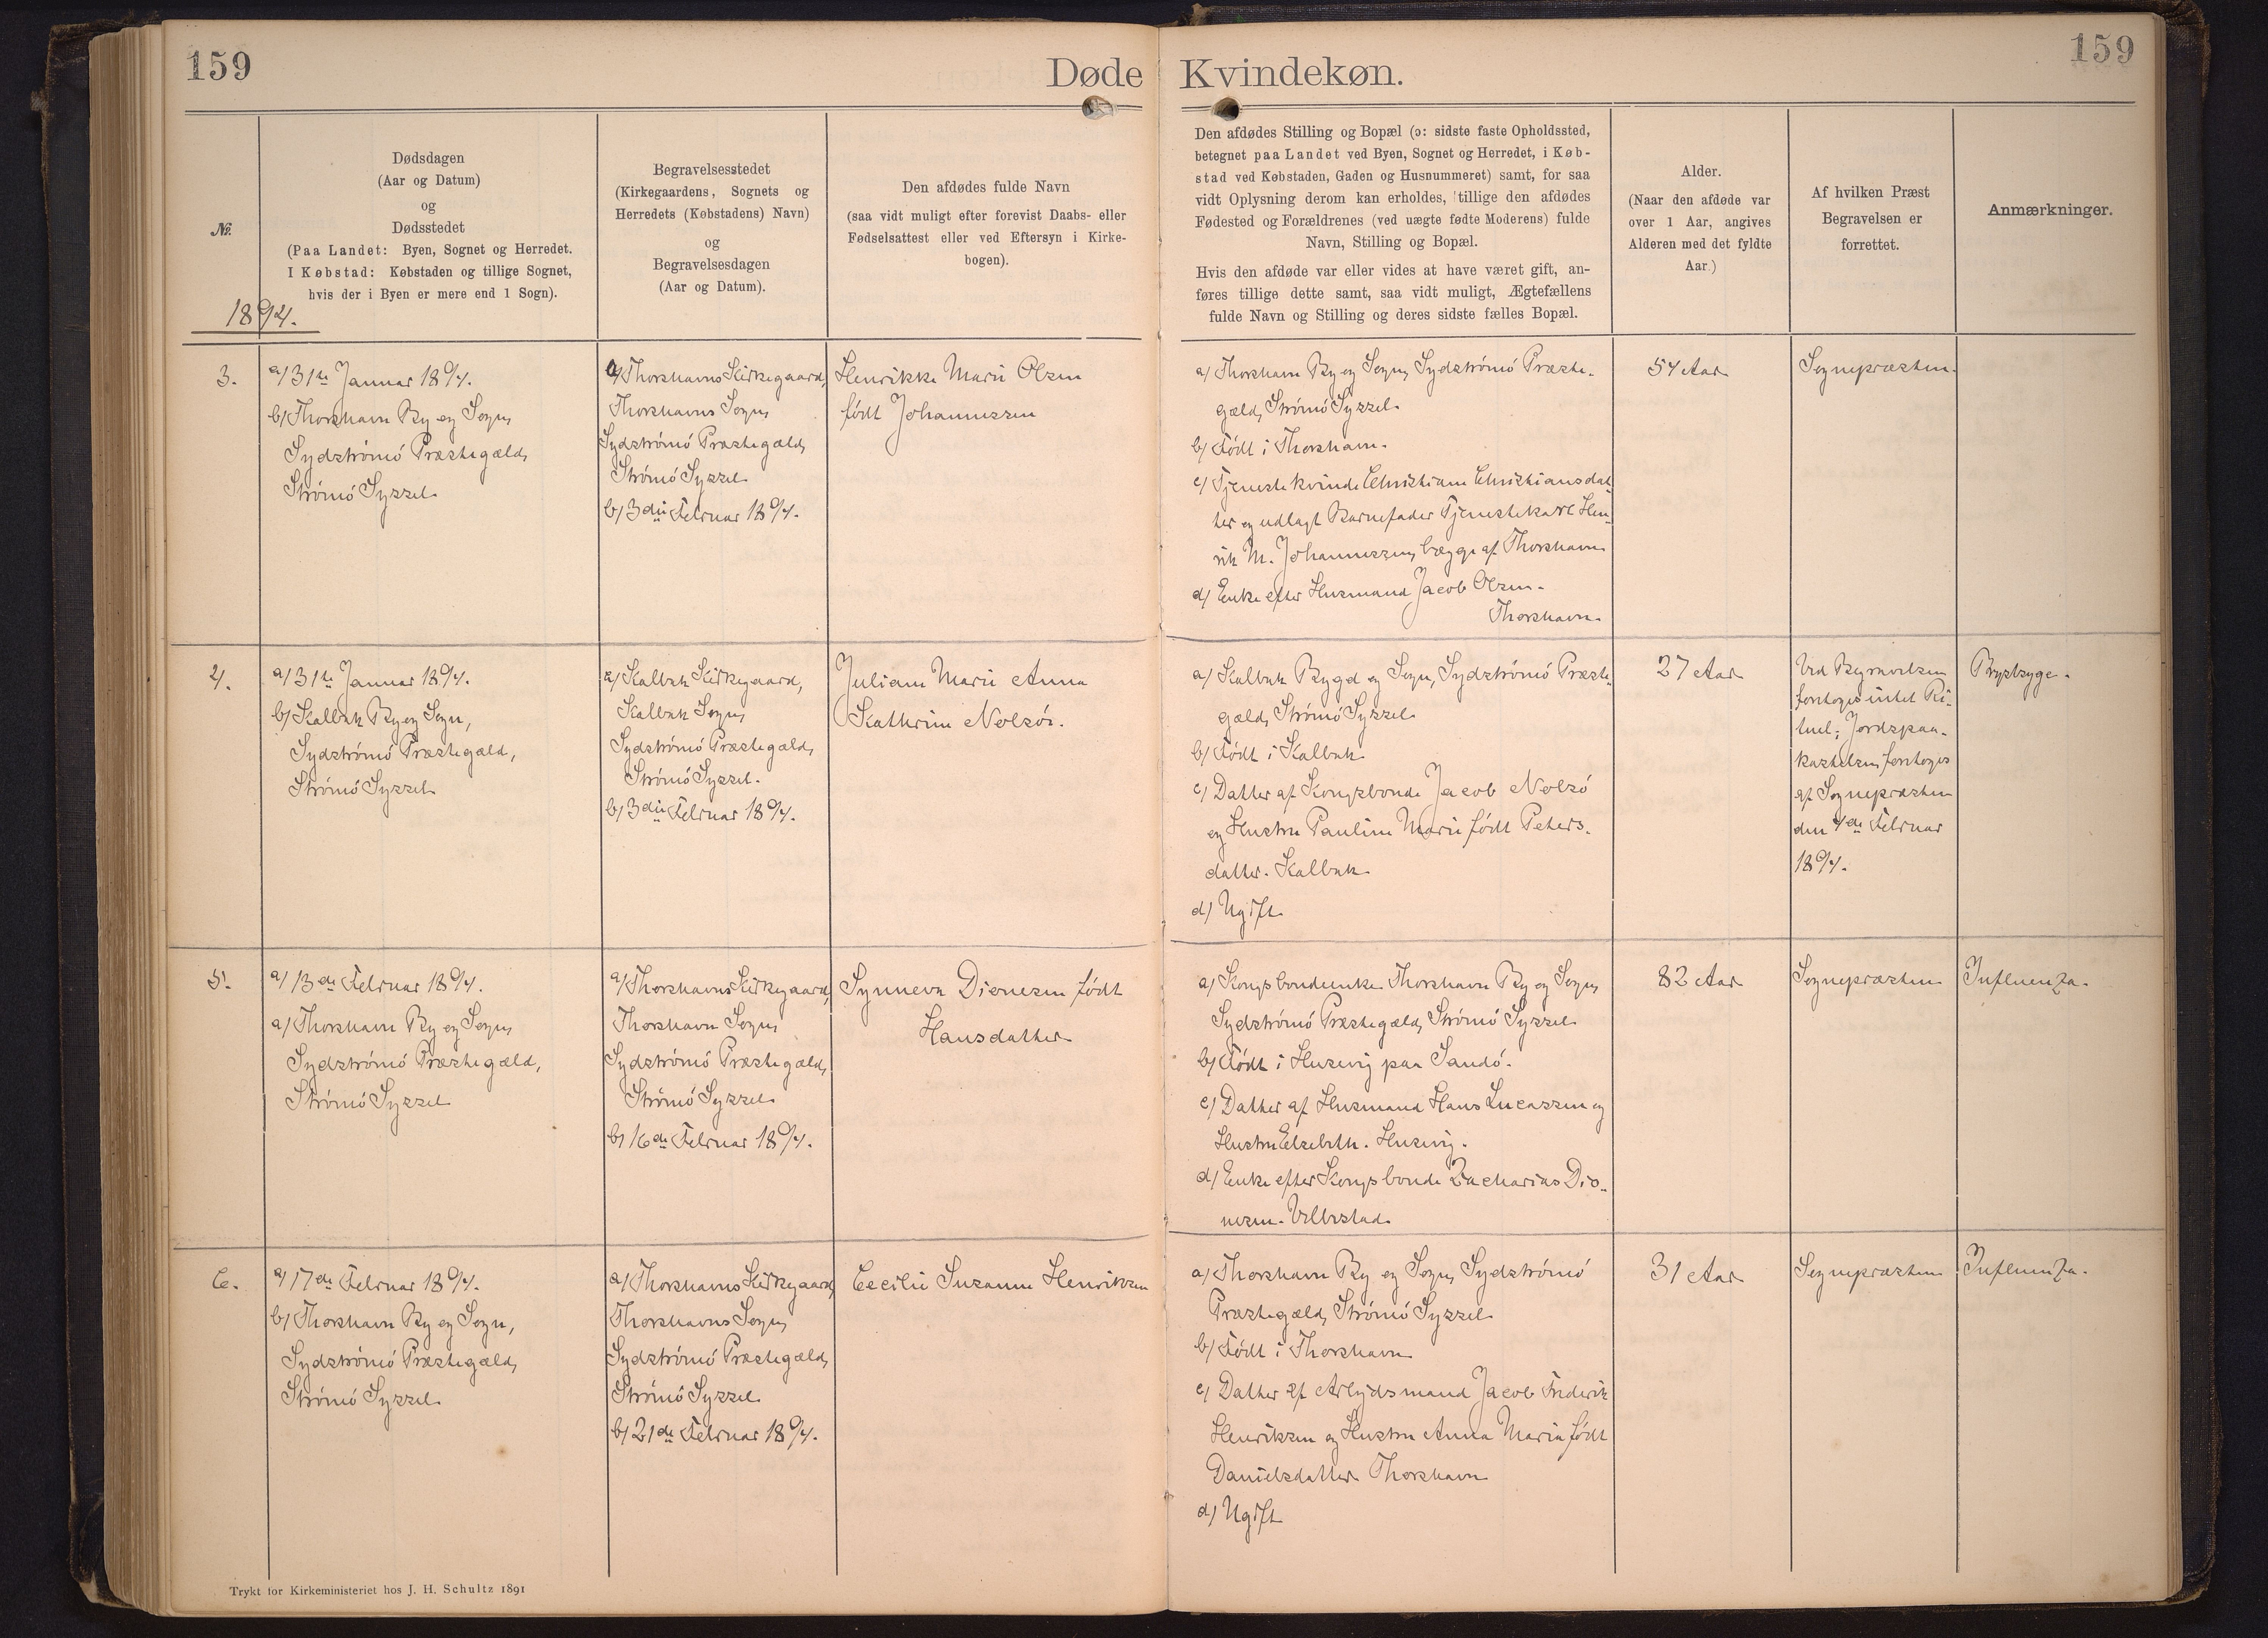 159
Døde Kvindekøn.
159
№
1894.
Dødsdagen
(Aar og Datum)
og
Dødsstedet
(Paa Landet: Byen, Sognet og Herredet.
I Købstad: Købstaden og tillige Sognet,
hvis der i Byen er mere end 1 Sogn).
Begravelsesstedet
(Kirkegaardens, Sognets og
Herredets (Købstadens) Navn)
og
Begravelsesdagen
(Aar og Datum).
Den afdødes fulde Navn
(saa vidt muligt efter forevist Daabs- eller
Fødselsattest eller ved Eftersyn i Kirke-
bogen).
Den afdødes Stilling og Bopæl (ɔ: sidste faste Opholdssted,
betegnet paa Landet ved Byen, Sognet og Herredet, i Køb-
stad ved Købstaden, Gaden og Husnummeret) samt, for saa
vidt Oplysning derom kan erholdes, tillige den afdødes
Fødested og Forældrenes (ved uægte fødte Moderens) fulde
Navn, Stilling og Bopæl.
Hvis den afdøde var eller vides at have været gift, an-
føres tillige dette samt, saa vidt muligt, Ægtefællens
fulde Navn og Stilling og deres sidste fælles Bopæl.
Alder.
(Naar den afdøde var
over 1 Aar, angives
Alderen med det fyldte
Aar.)
Af hvilken Præst
Begravelsen er
forrettet.
Anmærkninger.
3.
a/ 31te Januar 1894.
b/ Thorshavn By og Sogn,
Sydströmö Præstegæld,
Strömö Syssel.
a/ Thorshavns Kirkegaard,
Thorshavns Sogn,
Sydströmö Præstegæld,
Strömö Syssel.
b/ 3die Februar 1894.
Henrikke Marie Olsen
født Johannessen
a/ Thorshavn By og Sogn, Sydströmö Præste-
gæld, Strömö Syssel.
b/ Født i Thorshavn.
c/ Tjenestekvinde Christiane Christiansdat-
ter og udlagt Barnefader Tjenestekarl Hen-
rik M. Johannessen, begge af Thorshavn.
d/ Enke efter Husmand Jacob Olsen.
Thorshavn.
54 Aar
Sognepræsten.
4.
a/ 31te Januar 1894.
b/ Kalbak By og Sogn,
Sydströmö Præstegæld,
Strömö Syssel.
a/ Kalbak Kirkegaard,
Kalbak Sogn,
Sydströmö Præstegæld,
Strömö Syssel.
b/ 3die Februar 1894.
Juliane Marie Anna
Kathrine Nolsöe.
a/ Kalbak Bygd og Sogn, Sydströmö Præste-
gæld, Strömö Syssel.
b/ Født i Kalbak.
c/ Datter af Kongsbonde Jacob Nolsö
og Hustru Pauline Marie født Peters-
datter. Kalbak.
d/ Ugift.
27 Aar
Ved
foretoges intet Ri-
tuel; Jordspaa-
kastelsen foretoges
af Sognepræsten
den 4de Februar
1894.
Brystsyge.
5.
a/ 13de Februar 1894.
a/ Thorshavn By og Sogn,
Sydströmö Præstegæld,
Strömö Syssel.
a/ Thorshavns Kirkegaard,
Thorshavn Sogn,
Sydströmö Præstegæld,
Strömö Syssel.
b/ 16de Februar 1894.
Synneva Dionesen født
Hansdatter
a/ Kongsbondeenke. Thorshavn By og Sogn,
Sydströmö Præstegæld, Strömö Syssel.
b/ Født i Husevig paa Sandö.
c/ Datter af Husmand Hans Lucassen og
Hustru Elsebeth. Husevig.
d/ Enke efter Kongsbonde Zacharias Dio-
nesen. Velbestad.
82 Aar
Sognepræsten
Influenza.
6.
a/ 17de Februar 1894.
b/ Thorshavn By og Sogn,
Sydströmö Præstegæld,
Strömö Syssel.
a/ Thorshavns Kirkegaard,
Thorshavns Sogn,
Sydströmö Præstegæld,
Strömö Syssel.
b/ 21de Februar 1894.
Cecilie Susanne Henriksen
a/ Thorshavn By og Sogn, Sydströmö
Præstegæld, Strömö Syssel.
b/ Født i Thorshavn.
c/ Datter af Arbejdsmand Jacob Frederik
Henriksen og Hustru Anna Maria født
Danielsdatter. Thorshavn.
d/ Ugift.
31 Aar
Sognepræsten
Influenza.
Trykt for Kirkeministeriet hos J. H. Schultz 1891